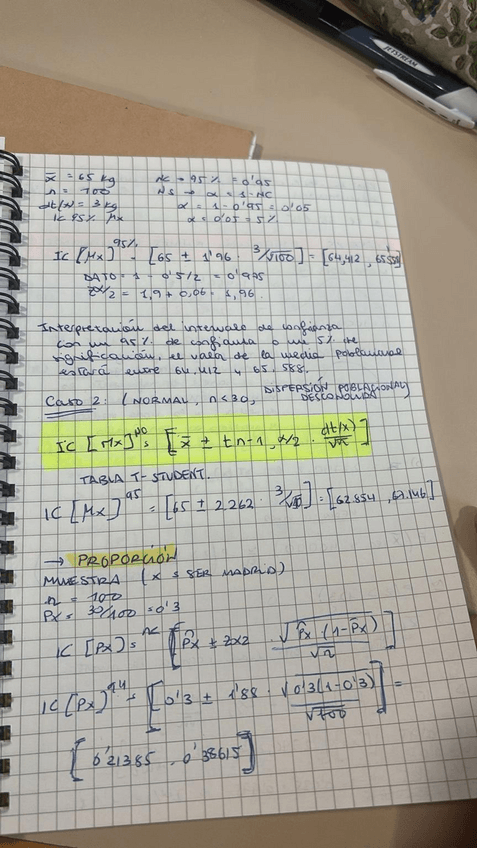 JETSTREAM
x̄ = 65 kg NC = 95% = 0'95
n = 100 NS → α = 1-NC
dt(x) = 3 kg α = 1-0'95 = 0'05
IC 95% μx α = 0'05 = 5%
IC [μx]^95% = [65 ± 1'96 · 3/√100] = [64,412 , 65'588]
DATO = 1 - 0'5/2 = 0'975
zα/2 = 1,9 + 0,06 = 1,96.
Interpretación del intervalo de confianza
con un 95% de confianza o un 5% de
significación, el valor de la media poblacional
estará entre 64.412 y 65.588.
CASO 2: (NORMAL, n<30, DISPERSIÓN POBLACIONAL
DESCONOCIDA)
IC [μx]^NC = [x̄ ± t n-1, α/2 · dt(x)/√n]
TABLA T-STUDENT.
IC [μx]^95 = [65 ± 2.262 · 3/√10] = [62.854 , 67.146]
→ PROPORCIÓN
MUESTRA (x = SER MADRID)
n = 100
Px = 30/100 = 0'3
IC [Px] = NC [P̂x ± zα/2 √P̂x · (1-P̂x)/√n]
IC [Px]^94 = [0'3 ± 1'88 · √0'3(1-0'3)/√100] =
[0'21385 , 0'38615]